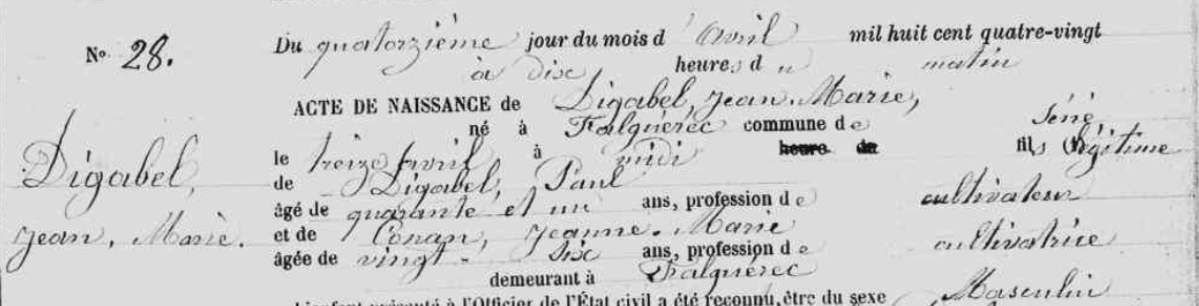 N° 28.
Du quatorzième jour du mois d'Avril mil huit cent quatre-vingt
à dix heures du matin
ACTE DE NAISSANCE de Digabel, Jean-Marie,
né à Falguérec commune de Séné
le treize avril à midi heure de fils légitime
de Digabel, Paul
âgé de quarante et un ans, profession de cultivateur
et de Conan, Jeanne-Marie
âgée de vingt-six ans, profession de cultivatrice
demeurant à Falguérec
présenté à l'Officier de l'État civil a été reconnu, être du sexe Masculin
Digabel,
Jean, Marie.